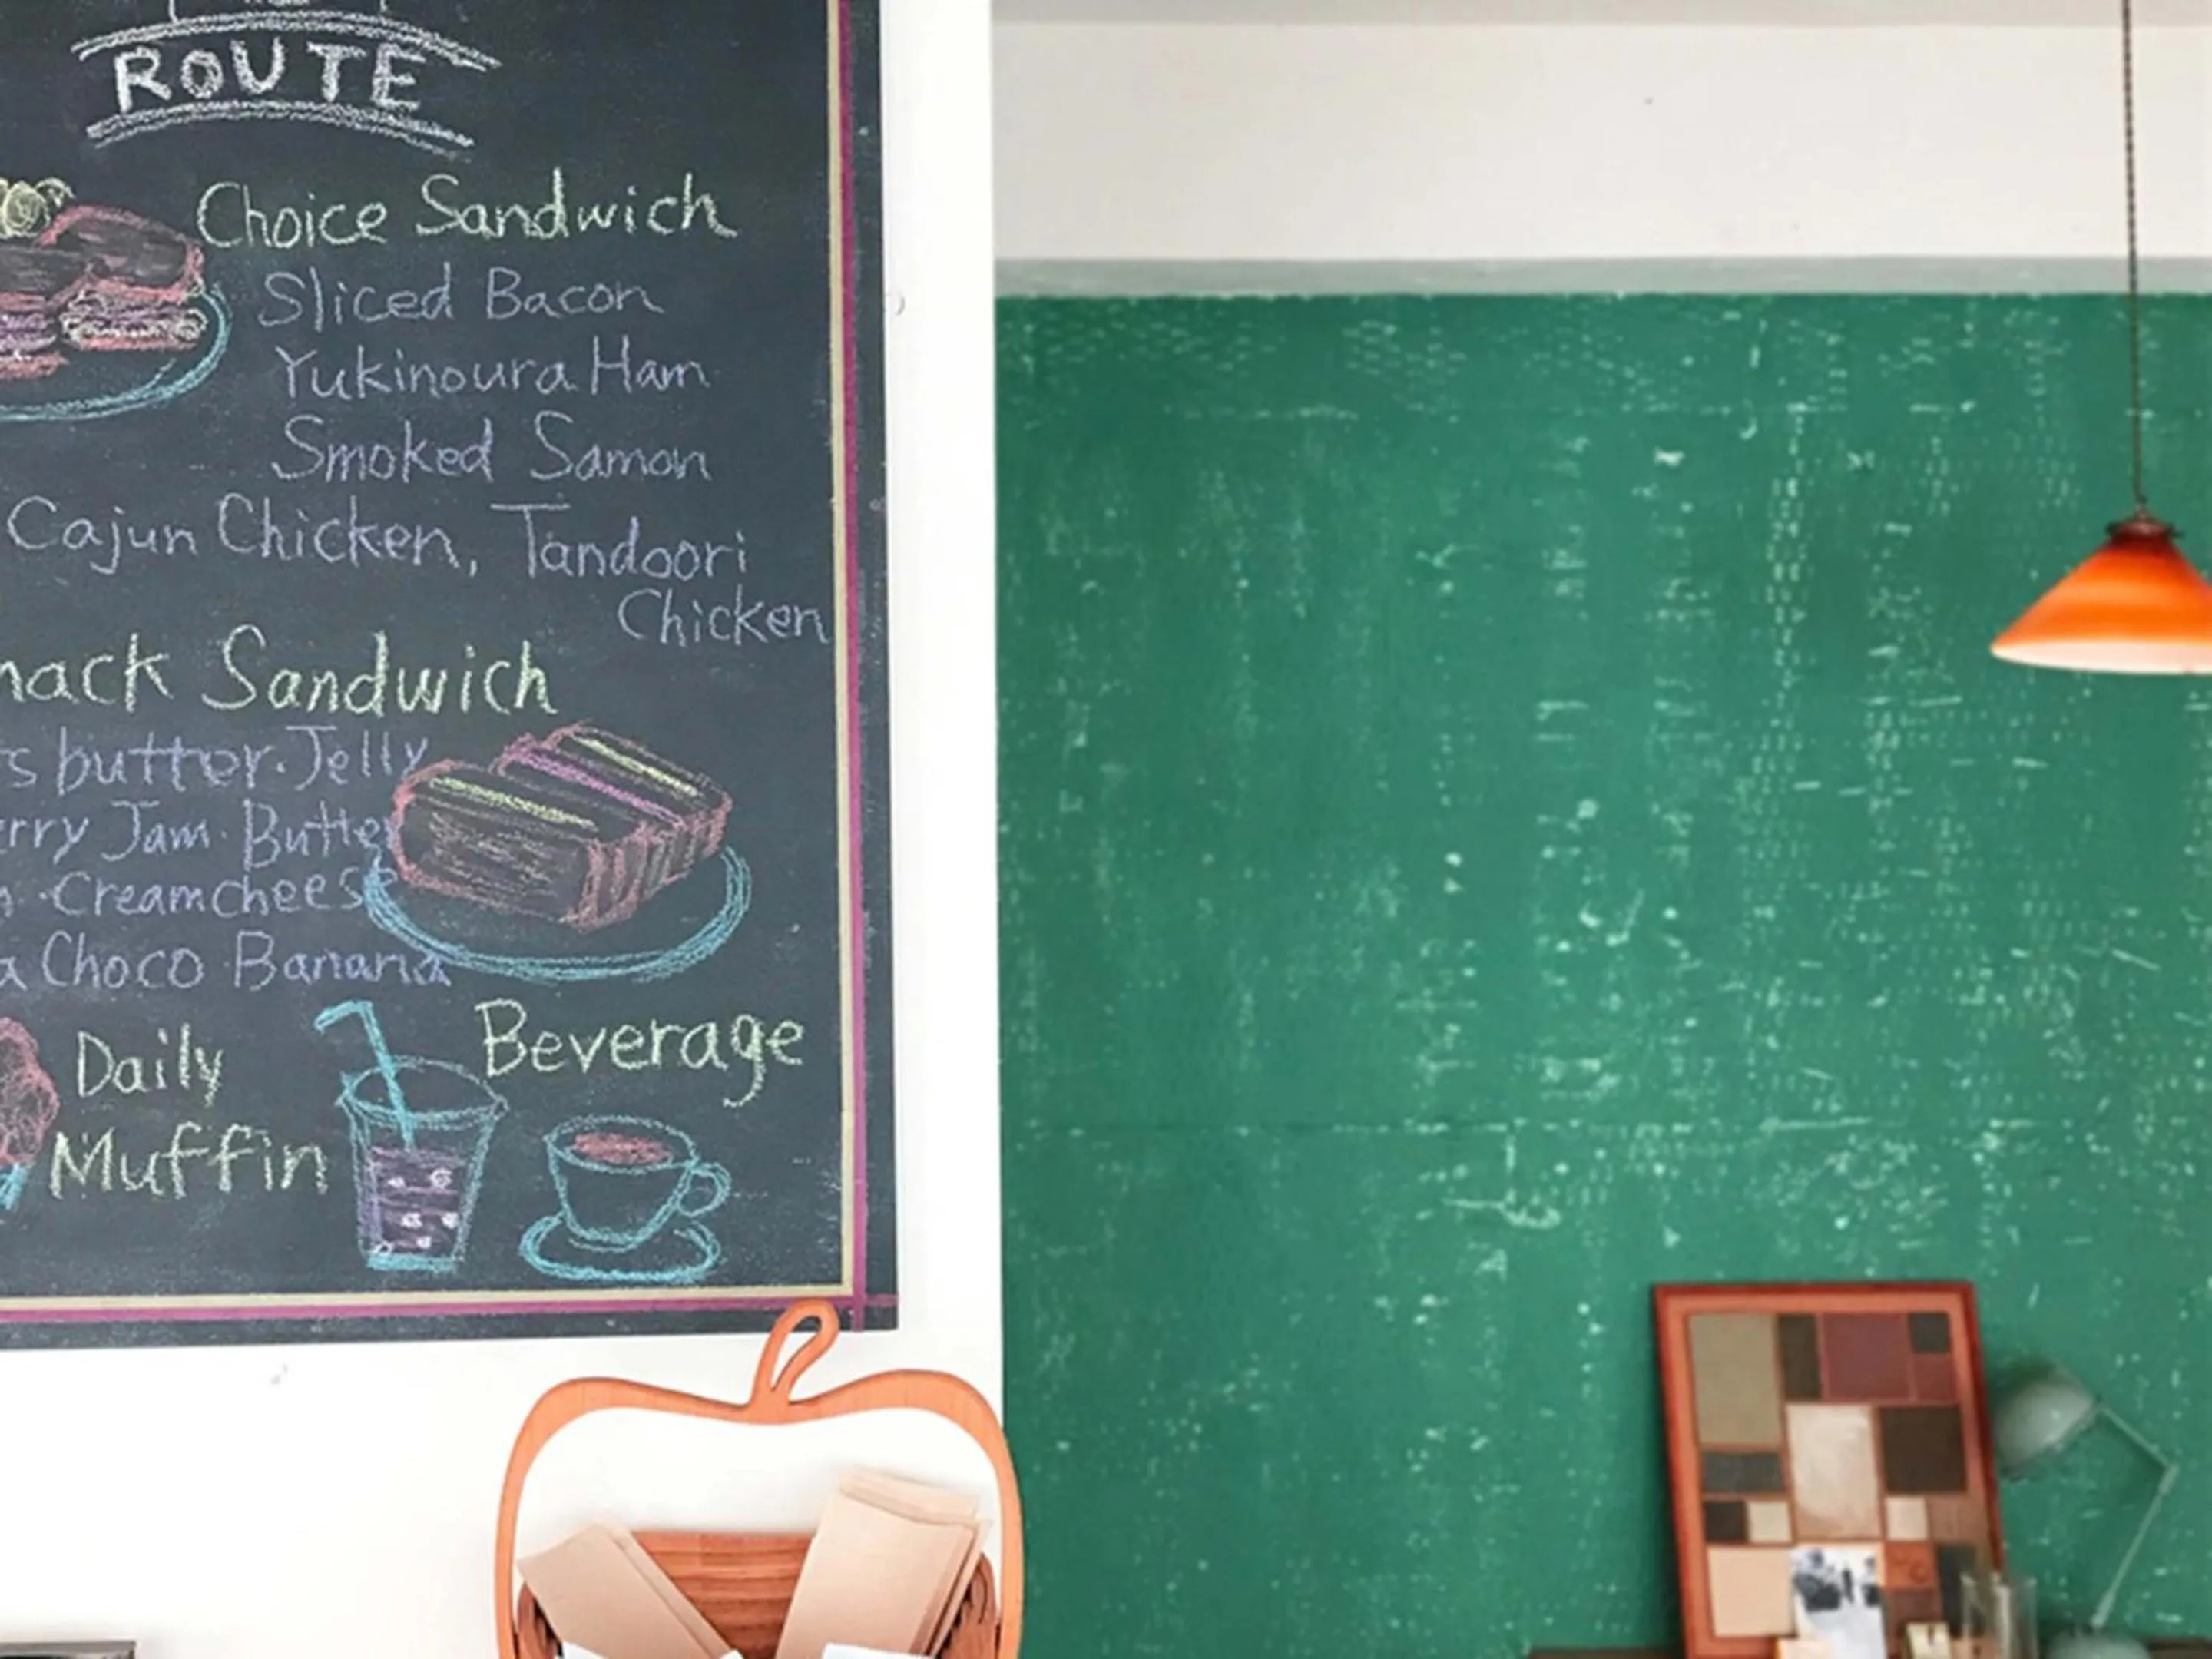 ROUTE
Choice Sandwich
Sliced Bacon
Yukinoura Ham
Smoked Samon
Cajun Chicken, Tandoori
Chicken
Sandwich
butter. Jelly
Jam. Butter
Creamcheese
Choco Banana
Daily
Muffin
Beverage